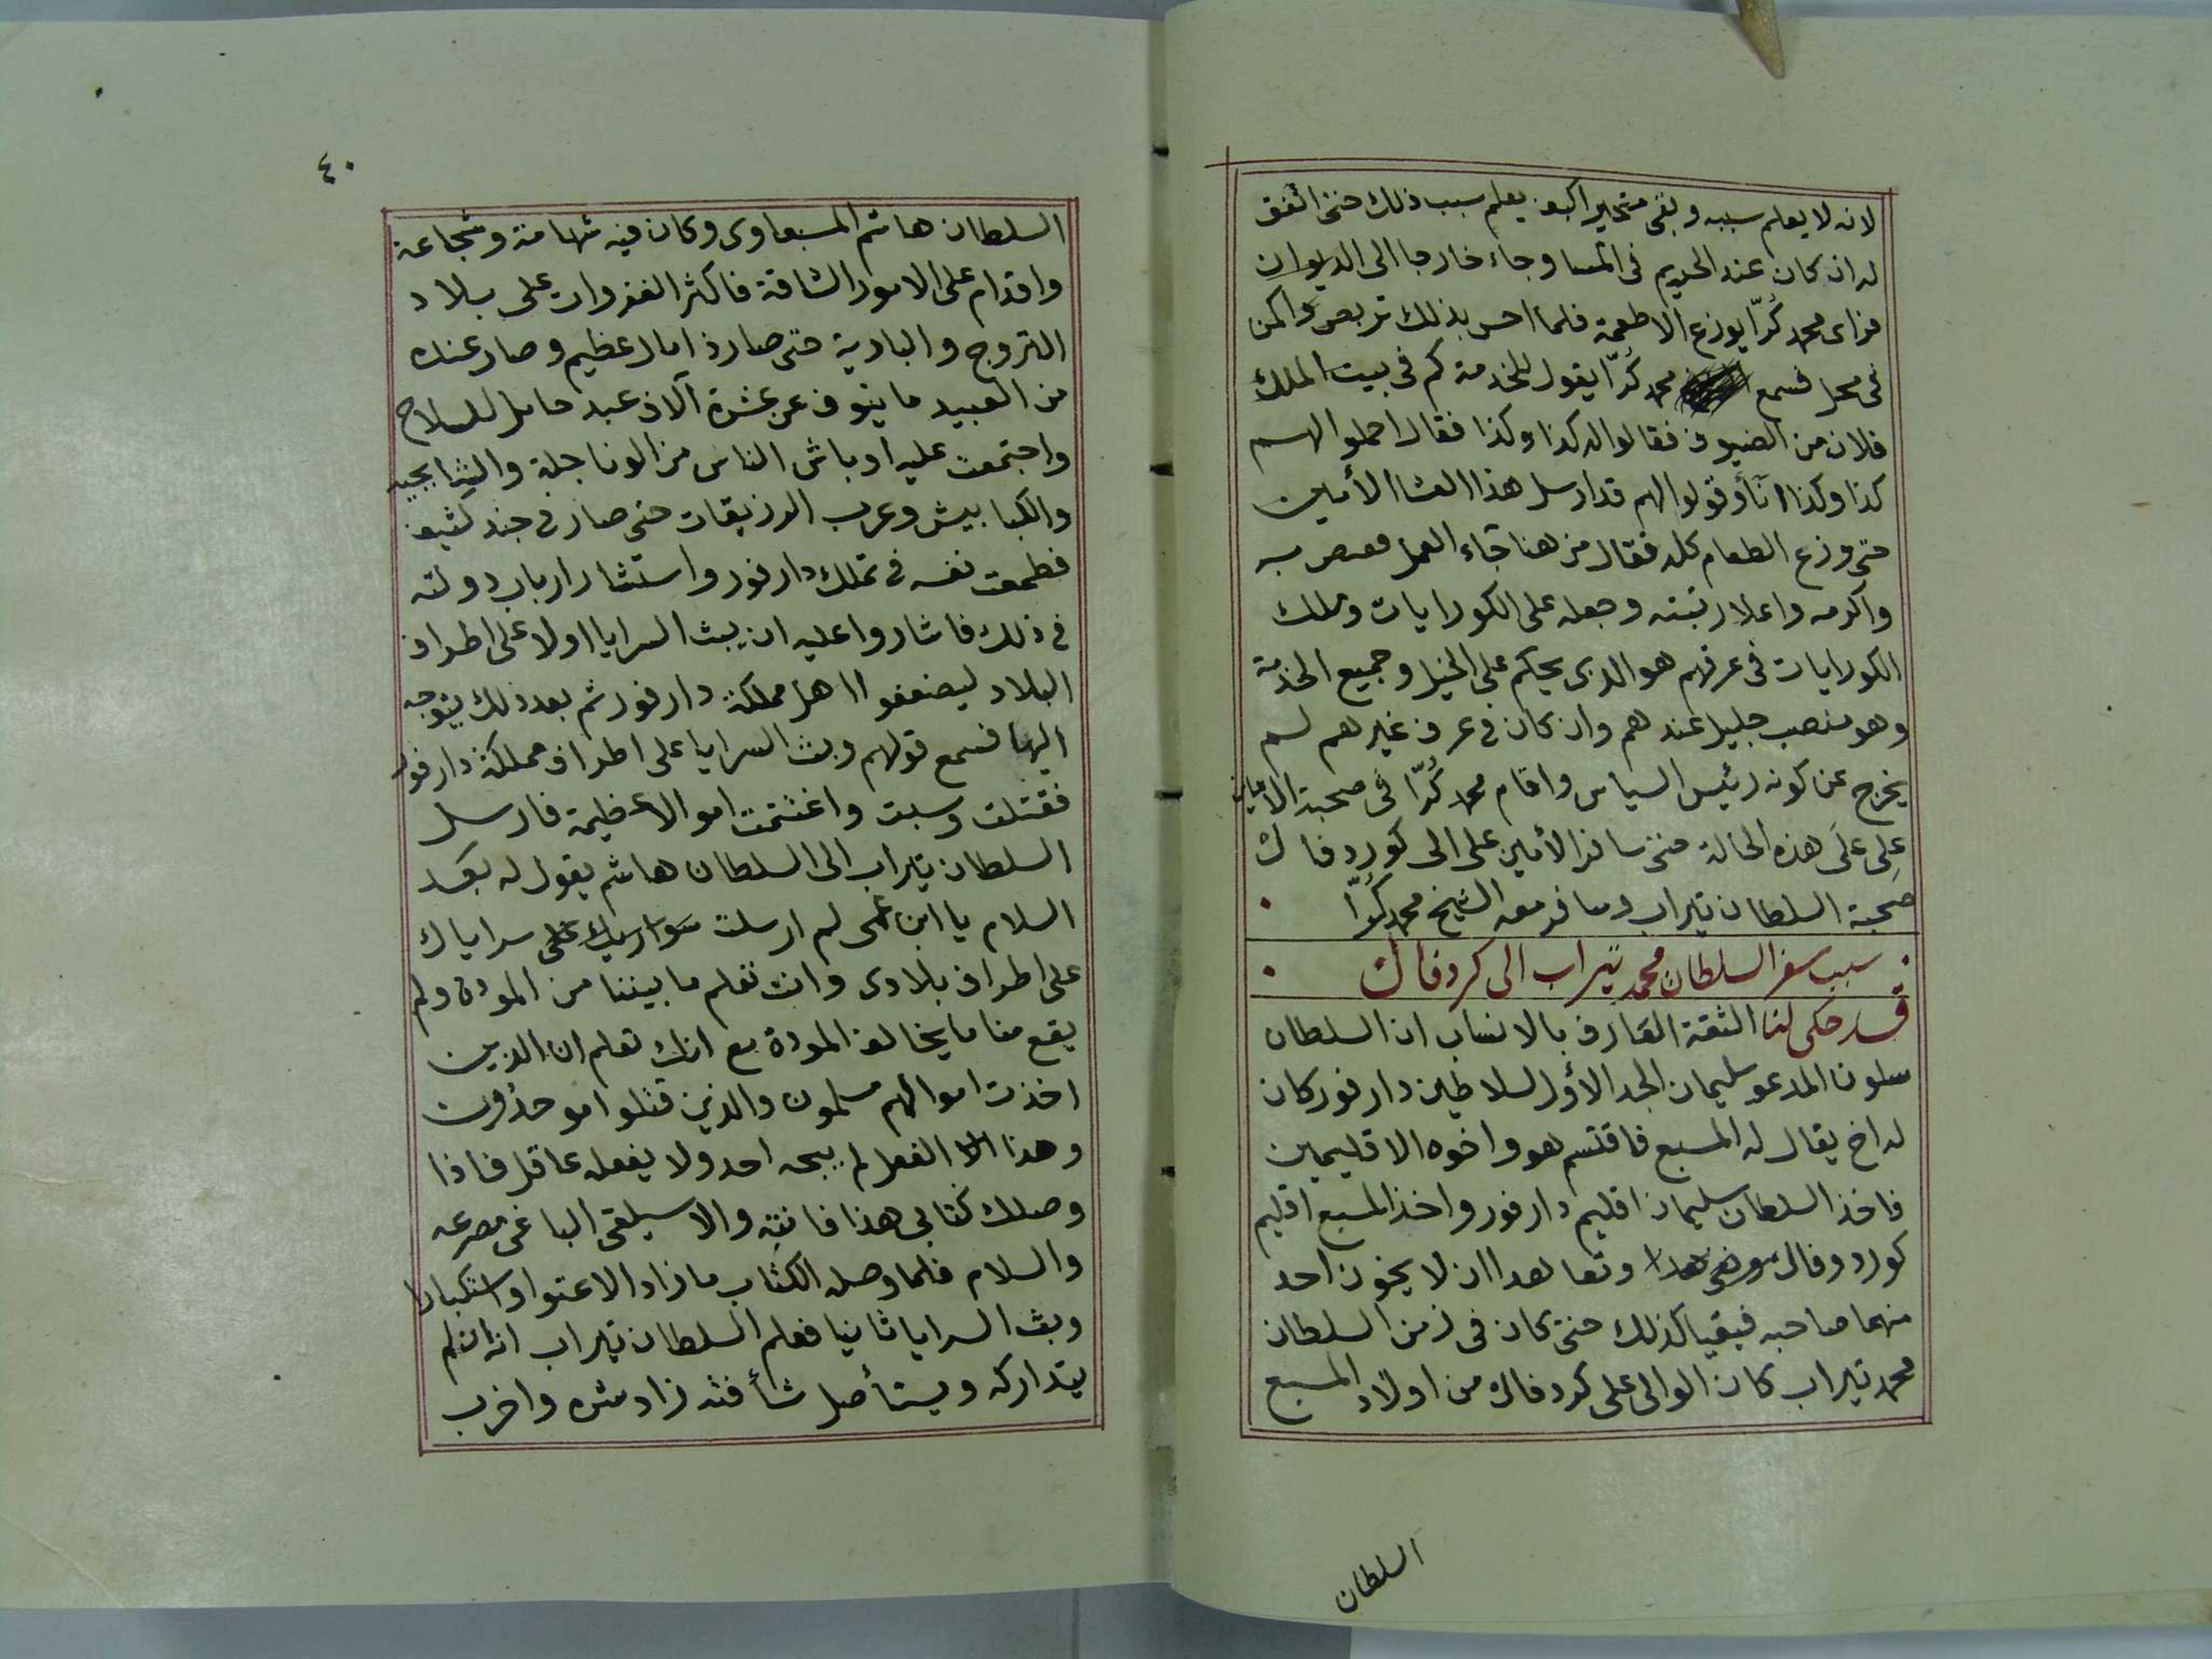 لانه لا يعلم سببه وبقى متحيرا كيف يعلم سبب ذلك حتى اتفق
له ان كان عند الحريم فى المسا وجاء خارجا الى الديوان
فراى محمد كُرّا يوزع الاطعمة فلما احس بذلك تربص واكمن
فى محل فسمع محمد كُرّا يقول للخدمة كم فى بيت الملك
فلان من الضيوف فقالوا له كذا وكذا فقال احملوا لهم
كذا وكذا انآء وقولوا لهم قد ارسل هذا العشا الأمين
حتى وزع الطعام كله فقال من هنا جاء العمل
واكرمه واعلا رتبته وجعله على الكورايات وملك
الكورايات فى عرفهم هو الدى يحكم على الخيل وجميع الخدمة
وهو منصب جليل عندهم وان كان فى عرف غيرهم لم
يخرج عن كونه رئيس السياس واقام محمد كُرّا فى صحبة الأمين
على عَلَى هذه الحالة حتى سافر الأمين على الى كوردفال
صحبة السلطان تيراب وسافر معه الشيخ محمد كُرّا
سبب سفر السلطان محمد تيراب الى كردفال
قد حكى لنا الثقة العَارف بالانساب ان السلطان
سلون المدعو سليمان الجد الأول لسلاطين دارفور كان
له اخ يقال له المسبع فاقتسم هو واخوه الاقليمين
فاخذ السلطان سليمان اقليم دارفور واخذ المسبع اقليم
كوردوفال وتعاهدا ان لا يخون احد
منهما صاحبه فبقيا كذلك حتى كان فى زمن السلطان
محمد تيراب كان الوالى على كردفال من اولاد المسبع
السلطان
٤٠
السلطان هاشم المسبعاوى وكان فيه شهامة وشجاعة
واقدام على الامور الشاقة فاكثر الغزوات على بلاد
التروج والبادية حتى صار ذا مال عظيم وصار عنده
من العبيد ما ينوف عن عشرة آلاف عبد حامل للسلاح
واجتمعت عليه اوباش الناس من الدناجلة والشايجيه
والكبابيش وعرب الرزيقات حتى صار فى جند كثيف
فطمعت نفسه فى تملك دارفور واستشار ارباب دولته
فى ذلك فاشاروا عليه ان يبث السرايا اولا على اطراف
البلاد ليضعفوا اهل مملكة دارفور ثم بعد ذلك يتوجه
اليها فسمع قولهم وبث السرايا على اطراف مملكة دارفور
فقتلت وسبت واغتنمت اموالا عظيمة فارسل
السلطان تيراب الى السلطان هاشم يقول له بعد
السلام يا ابن عمى لم ارسلت سواريك على سراياك
على اطراف بلادى وانت تعلم ما بيننا من المودة ولم
يقع منا ما يخالف المودة مع انك تعلم ان الدين
اخذت اموالهم مسلمون والذين قتلوا موحدُون
وهذا الفعل لم يبحه احد ولا يفعله عاقل فاذا
وصلك كتابى هذا فانته والا سيلقى الباغى مصرعه
والسلام فلما وصله الكتاب ما زاد الا عتوا واستكبارا
وبث السرايا ثانيا فعلم السلطان تيراب انه ان لم
يتداركه ويستأصل شأفته زاد شره واخرب